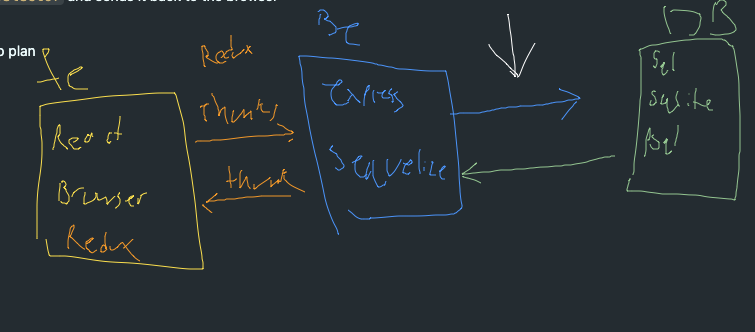 and sends it back to the browser
plan
Fe
React
Browser
Redux
Redux
Thunks
thunk
Be
Express
Sequelize
DB
Sql
Sqlite
Psql